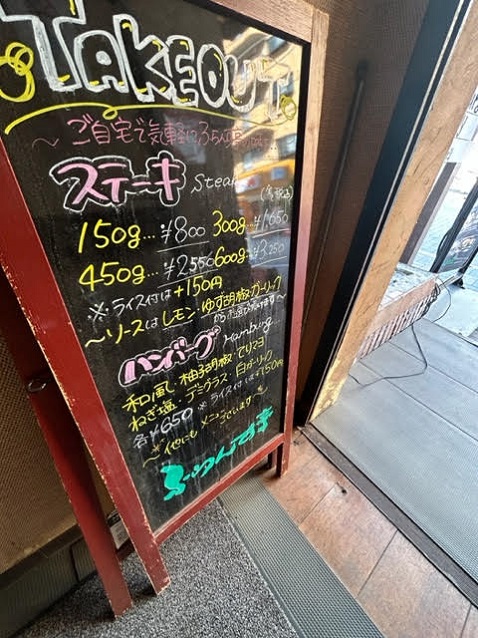 TAKEOUT
～ご自宅で気軽に
ステーキ Steak
150g…¥800 300g…¥1,650
450g…¥2,550 600g…¥3,250
※ライス付は+150円
～ソースはレモン・ゆず胡椒・ガーリック
からお選び頂けます～
ハンバーグ Hamburg…
和風・柚子胡椒・てりマヨ
ねぎ塩・デミグラス・白ガーリック
各¥650 ※ライス付は+150円
～※他にもメニューございます～